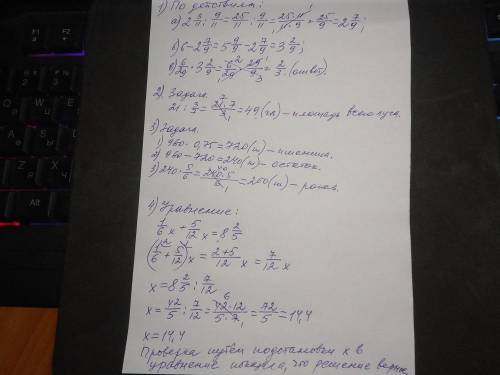 1) По действиям:
а) 2 3/11 : 9/11 = 25/11 : 9/11 = 25·11/11·9 = 25/9 = 2 7/9;
б) 6 - 2 7/9 = 5 9/9 - 2 7/9 = 3 2/9;
в) 6/29 · 3 2/9 = 6/29 · 29/9 = 2/3. (ответ).
2) Задача.
21 : 3/7 = 21·7/3 = 49 (га) – площадь всего
3) Задача.
1) 960 · 0,75 = 720 (т) –
2) 960 – 720 = 240 (т) – остаток.
3) 240 · 5/6 = 240·5/6 = 200 (т) –
4) Уравнение:
1/6 x + 5/12 x = 8 2/5
(1/6 + 5/12) x = 2+5/12 x = 7/12 x
x = 8 2/5 : 7/12
x = 42/5 : 7/12 = 42·12/5·7 = 72/5 = 14,4
x = 14,4
Проверка путём подстановки x в
уравнение показала, что решение